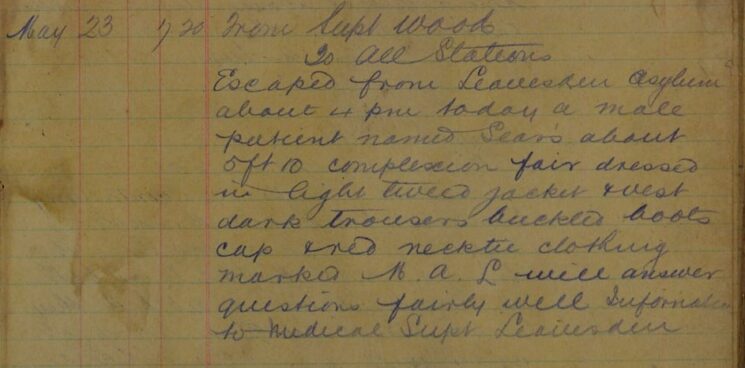 May 23 7.20 From Supt Wood
To All Stations
Escaped from Leavesden Asylum
about 4 pm today a male
patient named Sears about
5ft 10 complexion fair dressed
in light tweed jacket & vest
dark trousers buckled boots
cap & red necktie clothing
marked M. A. L will answer
questions fairly well Information
to Medical Supt Leavesden